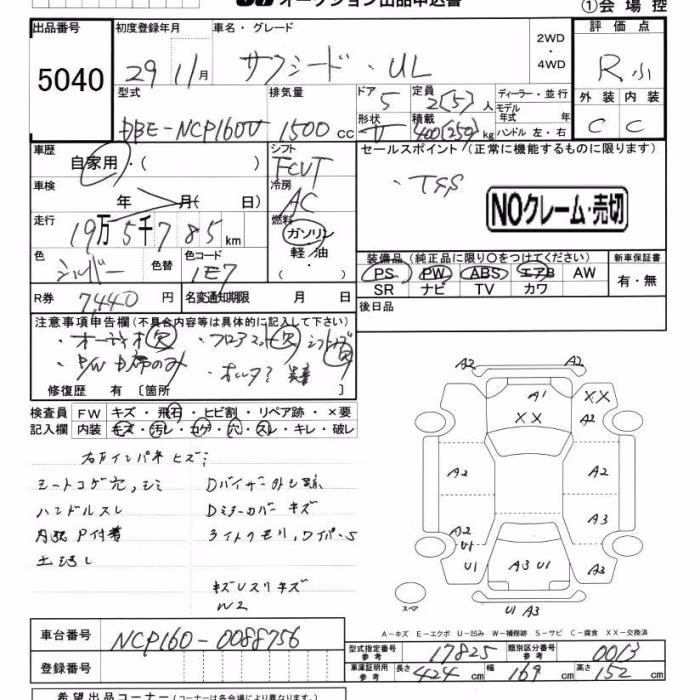 オークション出品申込書
①会場控
出品番号
5040
初度登録年月
29 11月
車名・グレード
サクシード・UL
2WD
・
4WD
評価点
R
型式
DBE-NCP160V
排気量
1500cc
ドア
5
形状
定員
2(5)人
積載
400(250)kg
ディーラー・並行
モデル
年式 年
ハンドル 左・右
外装
内装
C
C
車歴
自家用・( )
シフト
FCVT
セールスポイント(正常に機能するものに限ります)
・TSS
NOクレーム・売切
車検
年 月( 日)
冷房
AC
走行
19万5千785km
燃料
ガソリン
軽油
・( )
色
シルバー
色替
色コード
1E7
装備品(純正品に限り○をつけてください)
PS
PW
ABS
エアB
AW
SR
ナビ
TV
カワ
新車保証書
有・無
R券
7,440円
名変通知期限 月 日
後日品
注意事項申告欄(不具合内容等は具体的に記入して下さい)
・オーディオ欠
・フロアマット欠
・P/W
修復歴 有 [箇所 ]
検査員
記入欄
FW
キズ・飛石・ヒビ割・リペア跡・×要
内装
キズ・汚レ・コゲ・穴・スレ・キレ・破レ
右Fインパネ ヒズミ
シートコゲ穴,シミ
Dバイザー外シ跡
ハンドルスレ
Dミラーカバー キズ
P付着
ライトクモリ,ワイパーS
キズUスリキズ
W2
A2
A2
A1
XX
XX
A2
A2
A2
A3
A2
U1
U1
A3 U1
A3
U1 A3
スペア
A-キズ E-エクボ U-凹み W-補修跡 S-サビ C-腐食 XX-交換済
車台番号
NCP160-0088756
登録番号
型式指定番号
参考
17825
類別区分番号
参考
0013
車庫証明用
参考
長さ 424cm
幅 169cm
高さ 152cm
希望出品コーナー(コーナーは各会場により異なります)